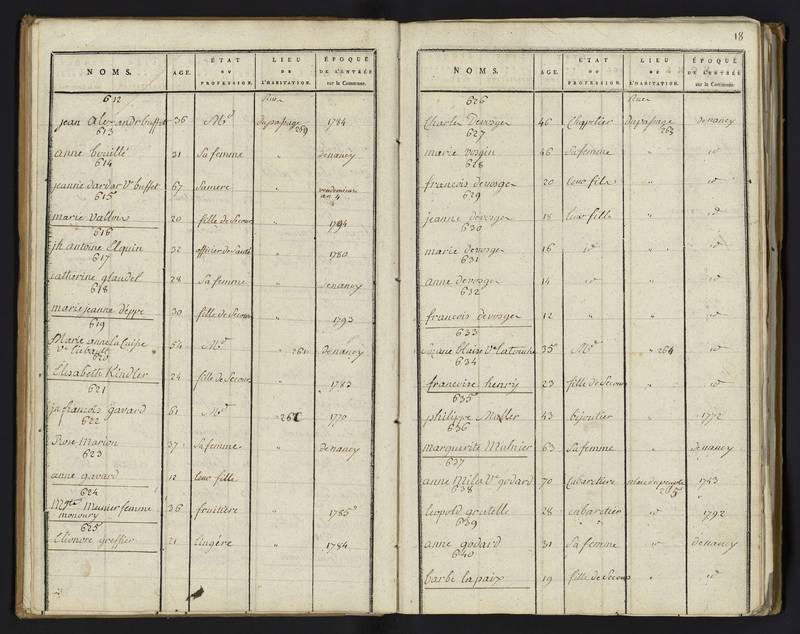 NOMS. AGE. ÉTAT OU PROFESSION. LIEU DE L'HABITATION. ÉPOQUE DE L'ENTRÉE sur la Commune.
612 Rue
jean Alexandre buffet 36 Md du passage 259 1784
613
anne bouillé 31 Sa femme " de nancy
614
jeanne dardar Ve buffet 67 Sa mere " vendemiere an 4
615
marie Vallois 20 fille de Secour " 1794
616
jh antoine Elquin 32 officier de Santé 1780
617
catherine glaudel 28 Sa femme " de nancy
618
marie jeanne deppe 30 fille de Secour " 1793
619
Marie anne la Caisse Ve Liebault 54 Md " 261 de nancy
620
Elisabeth Kindler 24 fille de Secour " 1783
621
jn françois gavard 61 Md 262 1770
622
Rose Marion 37 Sa femme " de nancy
623
anne gavard 12 leur fille
624
Mgte Munier femme monoury 36 fruitiere " 1785
625
Eléonore greffier 21 lingére " 1784
18
NOMS. AGE. ÉTAT OU PROFESSION. LIEU DE L'HABITATION. ÉPOQUE DE L'ENTRÉE sur la Commune.
626 Rue
Charles Devosge 46 Chapelier du passage 263 de nancy
627
marie vosgin 46 Sa femme " id
628
francois devosge 20 leur fils " id
629
jeanne devosge 18 leur fille " id
630
marie devosge 16 id " id
631
anne devosge 14 id " id
632
francois devosge 12 " " id
633
blaise Ve Latouche 35 Md " 264 id
634
francoise henry 23 fille de Secour " id
635
philippe Muller 43 bijoutier " 1772
636
marguerite Mulnier 63 Sa femme " de nancy
637
anne Milet Ve godard 70 Cabaretiere place du peuple 1783
638
leopold gratelle 28 cabaretier id 1792
639
anne godard 31 Sa femme id de nancy
640
barbe lapaix 19 fille de Secour " id